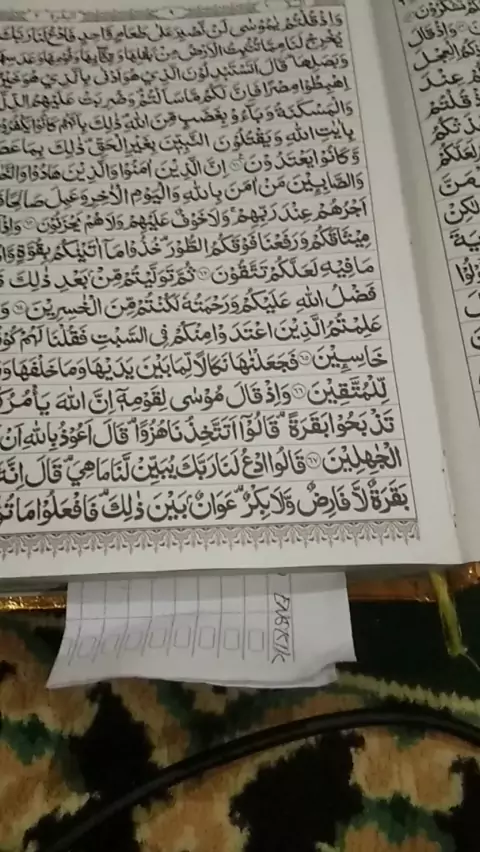 وَاِذْ قُلْتُمْ يٰمُوْسٰى لَنْ نَّصْبِرَ عَلٰى طَعَامٍ وَّاحِدٍ فَادْعُ لَنَا رَبَّكَ
يُخْرِجْ لَنَا مِمَّا تُنْۢبِتُ الْاَرْضُ مِنْۢ بَقْلِهَا وَقِثَّآئِهَا وَفُوْمِهَا وَعَدَسِهَا
وَبَصَلِهَا ؕ قَالَ اَتَسْتَبْدِلُوْنَ الَّذِيْ هُوَ اَدْنٰى بِالَّذِيْ هُوَ خَيْرٌ
اِهْبِطُوْا مِصْرًا فَاِنَّ لَكُمْ مَّا سَاَلْتُمْ ؕ وَضُرِبَتْ عَلَيْهِمُ الذِّلَّ
وَالْمَسْكَنَةُ وَبَآءُوْ بِغَضَبٍ مِّنَ اللّٰهِ ؕ ذٰلِكَ بِاَنَّهُمْ كَانُوْا يَكْفُرُوْ
بِاٰيٰتِ اللّٰهِ وَيَقْتُلُوْنَ النَّبِيّٖنَ بِغَيْرِ الْحَقِّ ؕ ذٰلِكَ بِمَا عَصَ
وَّكَانُوْا يَعْتَدُوْنَ ۝ اِنَّ الَّذِيْنَ اٰمَنُوْا وَالَّذِيْنَ هَادُوْا وَالنَّ
وَالصَّابِـِٕيْنَ مَنْ اٰمَنَ بِاللّٰهِ وَالْيَوْمِ الْاٰخِرِ وَعَمِلَ صَالِحًا فَ
اَجْرُهُمْ عِنْدَ رَبِّهِمْ ۚ وَلَا خَوْفٌ عَلَيْهِمْ وَلَا هُمْ يَحْزَنُوْنَ ۝ وَاِذْ
مِيْثَاقَكُمْ وَرَفَعْنَا فَوْقَكُمُ الطُّوْرَ ؕ خُذُوْا مَآ اٰتَيْنٰكُمْ بِقُوَّةٍ وَّا
مَا فِيْهِ لَعَلَّكُمْ تَتَّقُوْنَ ۝ ثُمَّ تَوَلَّيْتُمْ مِّنْۢ بَعْدِ ذٰلِكَ ۚ
فَضْلُ اللّٰهِ عَلَيْكُمْ وَرَحْمَتُهٗ لَكُنْتُمْ مِّنَ الْخٰسِرِيْنَ ۝ وَ
عَلِمْتُمُ الَّذِيْنَ اعْتَدَوْا مِنْكُمْ فِى السَّبْتِ فَقُلْنَا لَهُمْ كُوْنُ
خَاسِـِٕيْنَ ۝ فَجَعَلْنٰهَا نَكَالًا لِّمَا بَيْنَ يَدَيْهَا وَمَا خَلْفَهَا وَ
لِّلْمُتَّقِيْنَ ۝ وَاِذْ قَالَ مُوْسٰى لِقَوْمِهٖٓ اِنَّ اللّٰهَ يَاْمُرُكُ
تَذْبَحُوْا بَقَرَةً ؕ قَالُوْٓا اَتَتَّخِذُنَا هُزُوًا ؕ قَالَ اَعُوْذُ بِاللّٰهِ اَنْ
الْجٰهِلِيْنَ ۝ قَالُوا ادْعُ لَنَا رَبَّكَ يُبَيِّنْ لَّنَا مَا هِيَ ؕ قَالَ اِنَّهٗ
بَقَرَةٌ لَّا فَارِضٌ وَّلَا بِكْرٌ ؕ عَوَانٌۢ بَيْنَ ذٰلِكَ ؕ فَافْعَلُوْا مَا تُؤْ